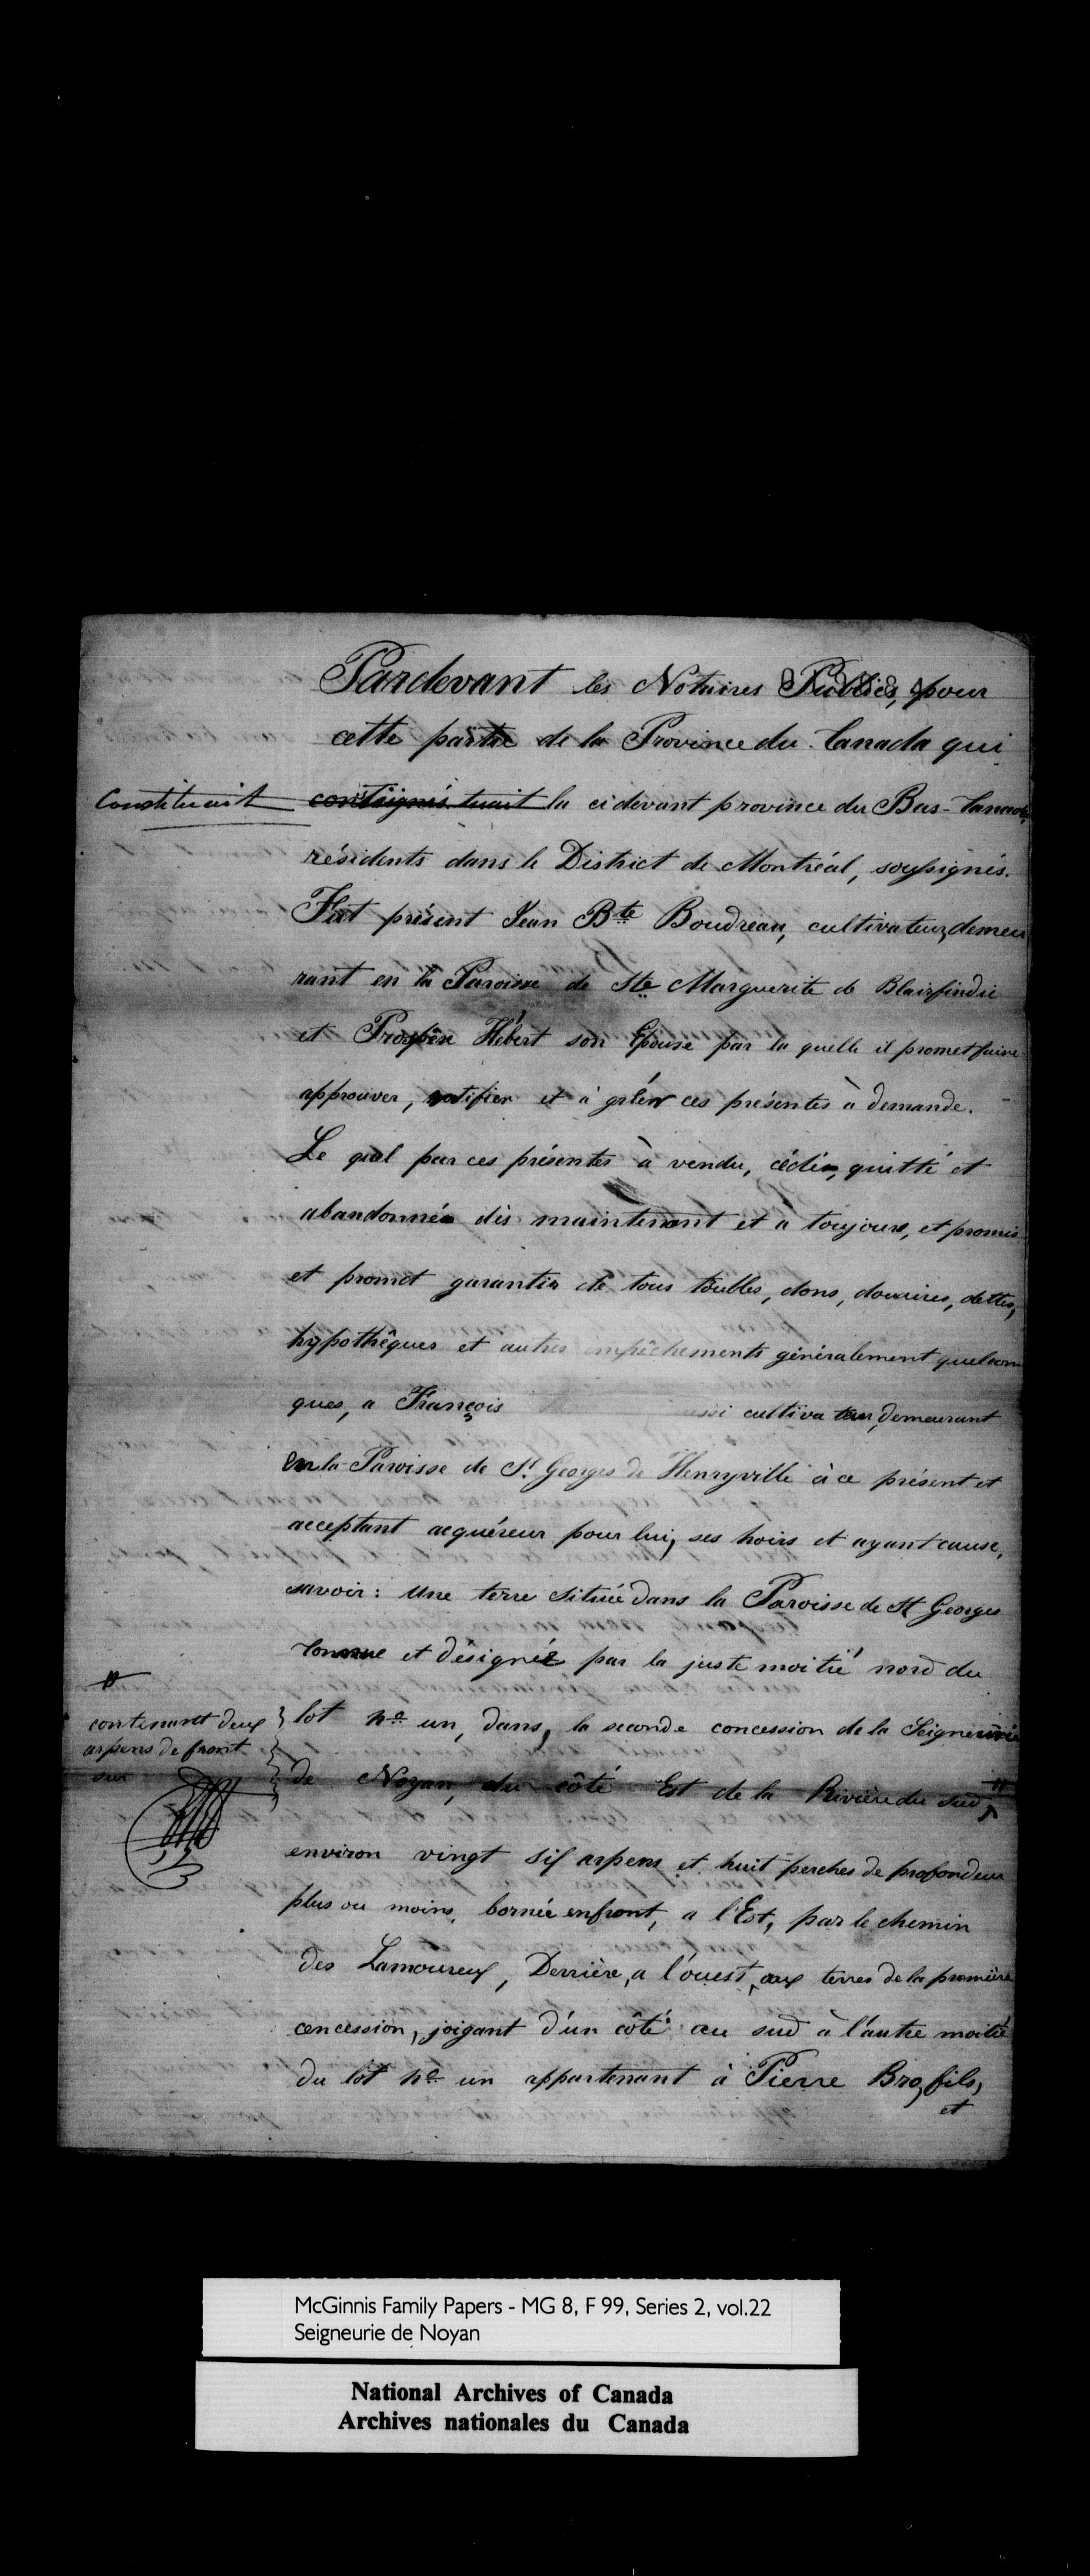 Pardevant les Notaires Publics, pour
cette partie de la Province du Canada qui
Constituait
la cidevant province du Bas-Canada,
résidents dans le District de Montréal, soussignés.
Fut présent Jean Bte Boudreau, cultivateur, demeu
rant en la Paroisse de Ste Marguerite de Blairfindie
et Prospère Hébert son Epouse par la quelle il promet faire
approuver, ratifier et à gréer ces présentes à demande.
Le quel par ces présentes à vendu, cédé, quitté et
abandonné dès maintenant et a toujours, et promis
et promet garantir de tous toubles, dons, douaires, dettes,
hypothêques et autres empêchements généralement quelcon
ques, a François cultivateur, demeurant
en la Paroisse de St Georges de Henryville à ce présent et
acceptant acquéreur pour lui, ses hoirs et ayant cause,
savoir: Une terre située dans la Paroisse de St Georges
connue et désignée par la juste moitié nord du
contenant deux
arpens de front
sur
lot No un, dans, la seconde concession de la Seigneurie
de Noyan, du côté Est de la Rivière du Sud,
environ vingt six arpens et huit perches de profondeur
plus ou moins, bornée enfront, a l'Est, par le chemin
des Lamoureux, Derrière, a l'ouest, aux terres de la première
concession, joigant d'un côté au sud à l'autre moitié
du lot No un appartenant à Pierre Bro, fils,
et
McGinnis Family Papers - MG 8, F 99, Series 2, vol.22
Seigneurie de Noyan
National Archives of Canada
Archives nationales du Canada